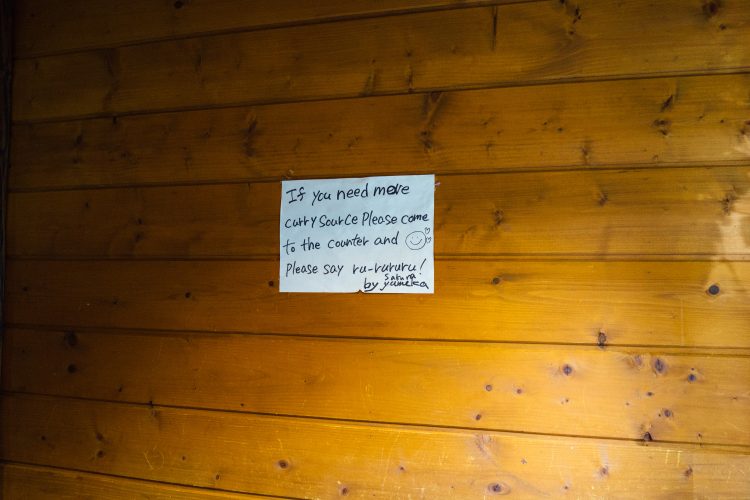 If you need more
curry source Please come
to the counter and
Please say ru-rururu!
by yumeka